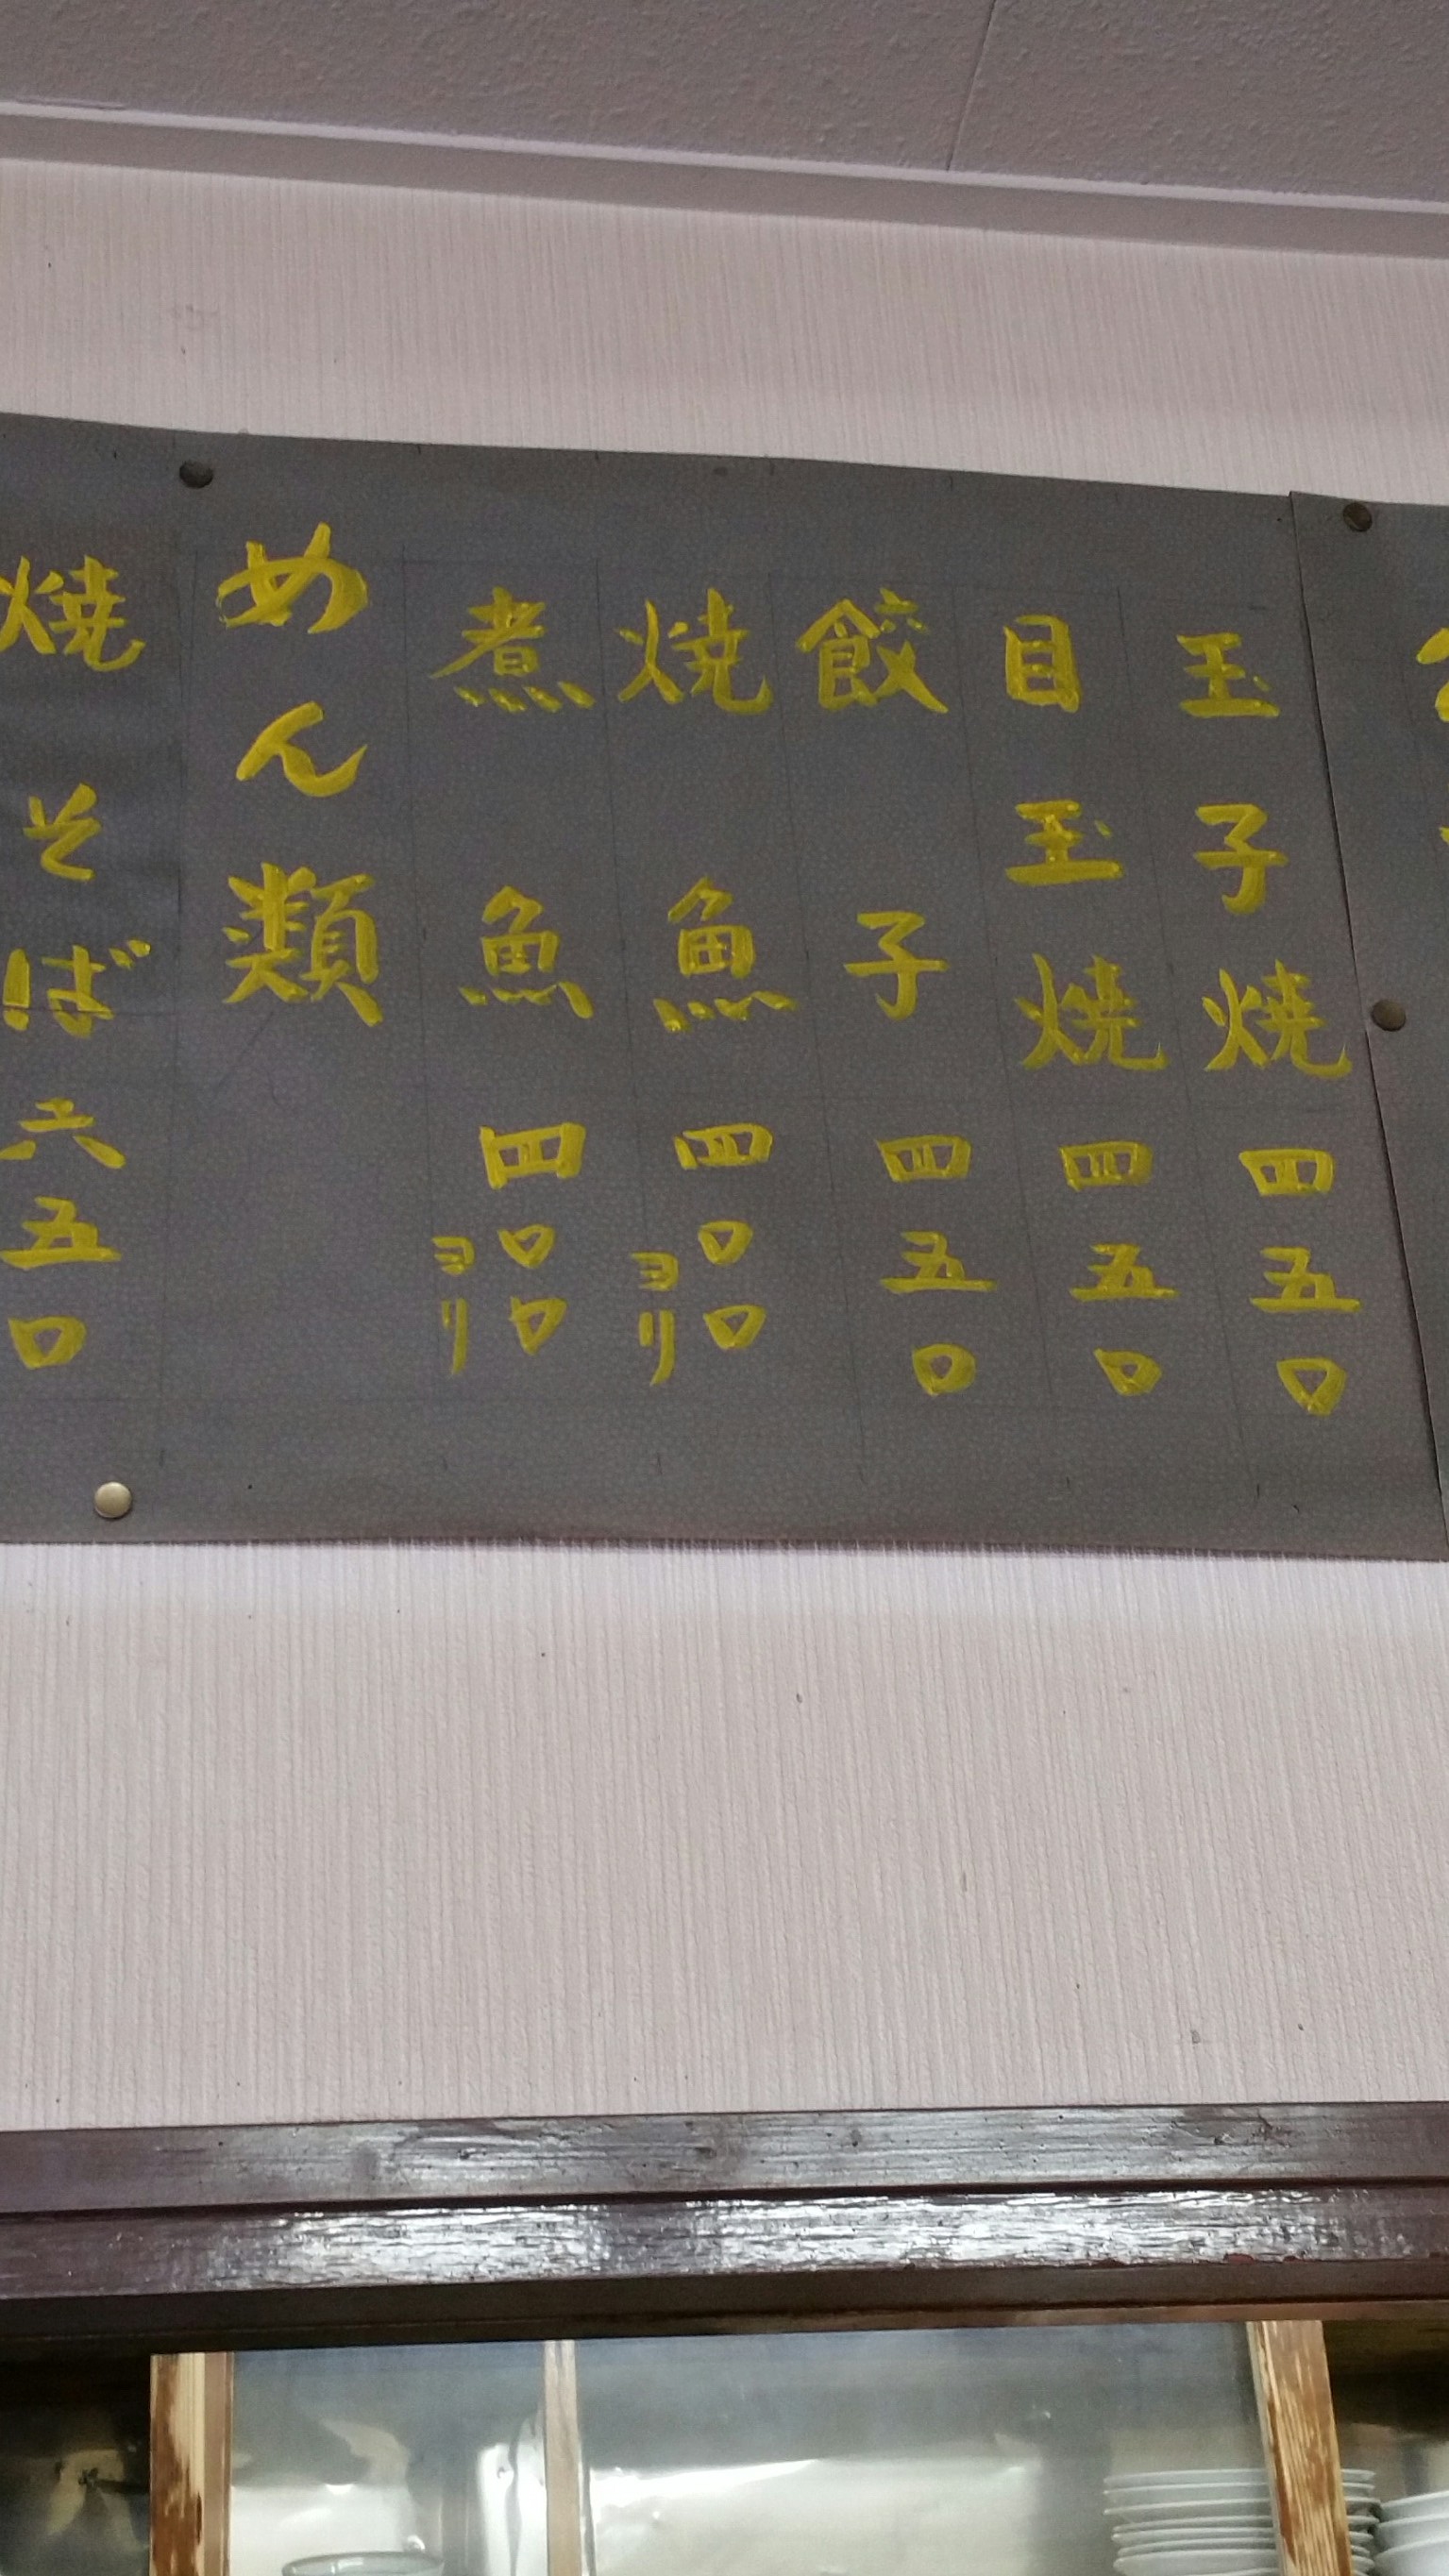 玉子焼 四五〇
目玉焼 四五〇
餃子 四五〇
焼魚 四〇〇ヨリ
煮魚 四〇〇ヨリ
めん類
焼そば 六五〇